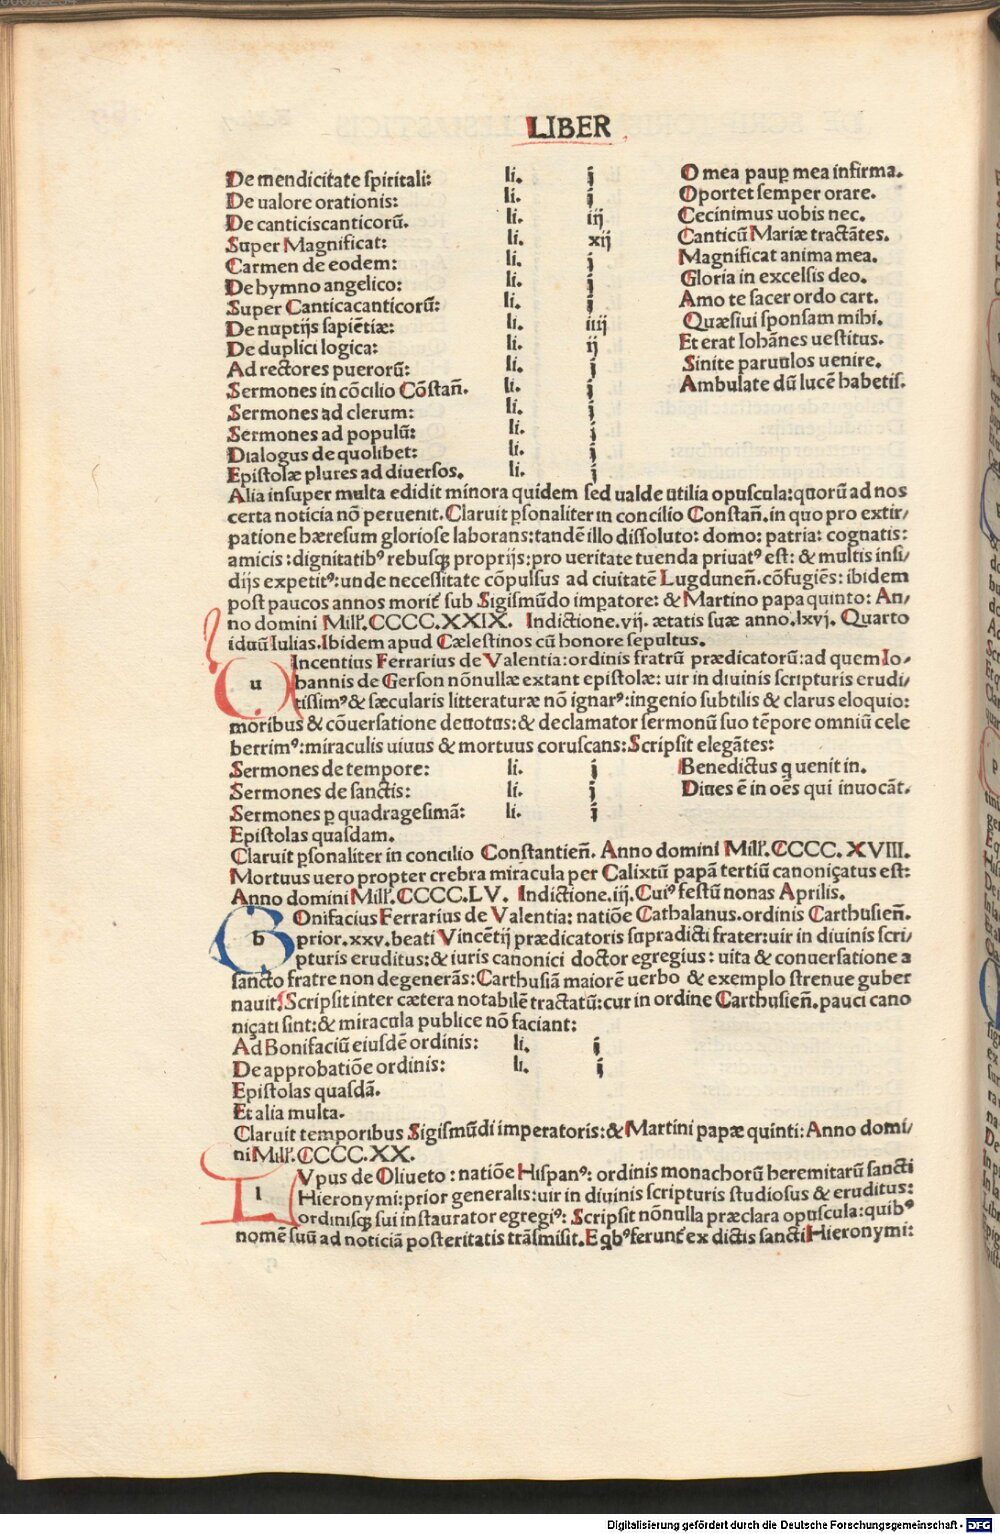 LIBER
De mendicitate spiritali: li. j O mea paup mea infirma.
De ualore orationis: li. j Oportet semper orare.
De canticis canticorū. li. iij Cecinimus uobis nec.
Super Magnificat: li. xij Canticū Mariæ tractātes.
Carmen de eodem: li. j Magnificat anima mea.
De hymno angelico: li. j Gloria in excelsis deo.
Super Cantica canticorū: li. j Amo te sacer ordo cart.
De nuptijs sapiētiæ: li. iiij Quæsiui sponsam mihi.
De duplici logica: li. ij Et erat Iohānes uestitus.
Ad rectores puerorū: li. j Sinite paruulos uenire.
Sermones in cōcilio Cōstañ. li. j Ambulate dū lucē habetis.
Sermones ad clerum: li. j
Sermones ad populū: li. j
Dialogus de quolibet: li. j
Epistolæ plures ad diuersos. li. j
Alia insuper multa edidit minora quidem sed ualde utilia opuscula: quorū ad nos
certa noticia nō peruenit. Claruit ꝑsonaliter in concilio Constañ. in quo pro extir/
patione hæresum gloriose laborans: tandē illo dissoluto: domo: patria: cognatis:
amicis: dignitatibꝰ rebusqꝫ proprijs: pro ueritate tuenda priuatꝰ est: & multis insi/
dijs expetitꝰ: unde necessitate cōpulsus ad ciuitatē Lugduneñ. cōfugiēs: ibidem
post paucos annos morit̄ sub Sigismūdo impatore: & Martino papa quinto: An/
no domini Mill'. CCCC. XXIX. Indictione .vij. ætatis suæ anno .lxvj. Quarto
iduū Iulias. Ibidem apud Cælestinos cū honore sepultus.
u Incentius Ferrarius de Valentia: ordinis fratrū prædicatorū: ad quem Io/
hannis de Gerson nōnullæ extant epistolæ: uir in diuinis scripturis erudi/
tissimꝰ & sæcularis litteraturæ nō ignarꝰ: ingenio subtilis & clarus eloquio:
moribus & cōuersatione deuotus: & declamator sermonū suo tēpore omniū cele
berrimꝰ: miraculis uiuus & mortuus coruscans: Scripsit elegātes:
Sermones de tempore: li. j Benedictus q uenit in.
Sermones de sanctis: li. j Diues ē in oēs qui inuocāt.
Sermones ꝑ quadragesimā: li. j
Epistolas quasdam.
Claruit ꝑsonaliter in concilio Constantieñ. Anno domini Mill'. CCCC. XVIII.
Mortuus uero propter crebra miracula per Calixtū papā tertiū canoniçatus est:
Anno domini Mill'. CCCC. LV. Indictione .iij. Cuiꝰ festū nonas Aprilis.
b Onifacius Ferrarius de Valentia: natiōe Cathalanus. ordinis Carthusieñ.
prior .xxv. beati Vincētij prædicatoris supradicti frater: uir in diuinis scri/
pturis eruditus: & iuris canonici doctor egregius: uita & conuersatione a
sancto fratre non degenerās: Carthusiā maiorē uerbo & exemplo strenue guber
nauit. Scripsit inter cætera notabilē tractatū: cur in ordine Carthusieñ. pauci cano
niçati sint: & miracula publice nō faciant:
Ad Bonifaciū eiusdē ordinis: li. j
De approbatiōe ordinis: li. j
Epistolas quasdā.
Et alia multa.
Claruit temporibus Sigismūdi imperatoris: & Martini papæ quinti: Anno domi/
ni Mill'. CCCC. XX.
l Vpus de Oliueto: natiōe Hispanꝰ: ordinis monachorū heremitarū sancti
Hieronymi: prior generalis: uir in diuinis scripturis studiosus & eruditus:
ordinisqꝫ sui instaurator egregiꝰ: Scripsit nōnulla præclara opuscula: quibꝰ
nomē suū ad noticiā posteritatis trāsmisit. E qbꝰ ferunt̄ ex dictis sancti Hieronymi:
Digitalisierung gefördert durch die Deutsche Forschungsgemeinschaft - DFG